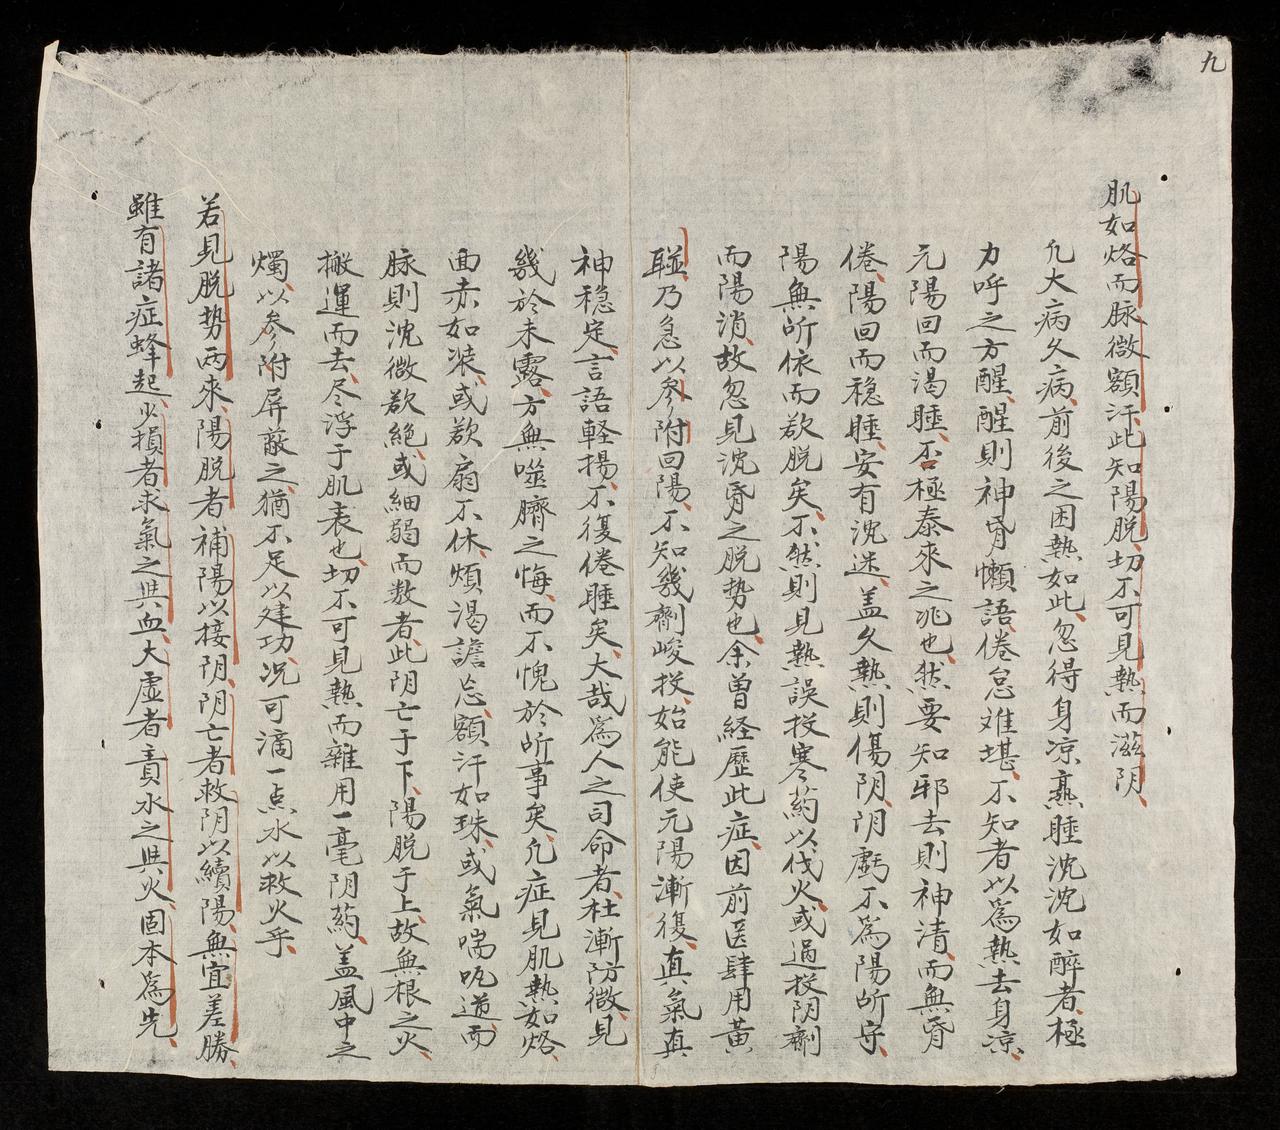 九
肌如烙而脉微額汗、此知陽脱、切不可見熱而滋阴、
凢大病久病、前後之困熱如此、忽得身凉、熟睡沈沈如醉者、極
力呼之方醒、醒則神昏懶語、倦怠难堪、不知者以爲熱去身凉、
元陽回而渴睡、否極泰來之兆也、然要知邪去則神清、而無昏
倦、陽回而穏睡、安有沈迷、盖久熱則傷阴、阴虧不爲陽所守、
陽無所依而欲脱矣、不然則見熱誤投寒药以伐火、或過投阴劑
而陽消、故忽見沈昏之脱势也、余曽経歷此症、因前医肆用黄
聯、乃急以参附回陽、不知幾劑峻投、始能使元陽漸復、真氣真
神穏定、言語軽揚、不復倦睡矣、大哉爲人之司命者、杜漸防微見
幾於未露、方無噬臍之悔、而不愧於所事矣、凢症見肌熱如烙、
面赤如装、或欲扇不休、煩渴譫忘、額汗如珠、或氣喘呃逆、而
脉則沈微欲絶、或細弱而数者、此阴亡于下、陽脱于上、故無根之火、
搬運而去、尽浮于肌表也、切不可見熱而雜用一毫阴药、盖風中之
燭、以参附屏蔽之、猶不足以建功、况可滴一点水以救火乎、
若見脱势两來、陽脱者補陽以接阴、阴亡者救阴以續陽、無宜差勝、
雖有諸症蜂起、少損者求氣之與血、大虚者責水之與火、固本爲先、